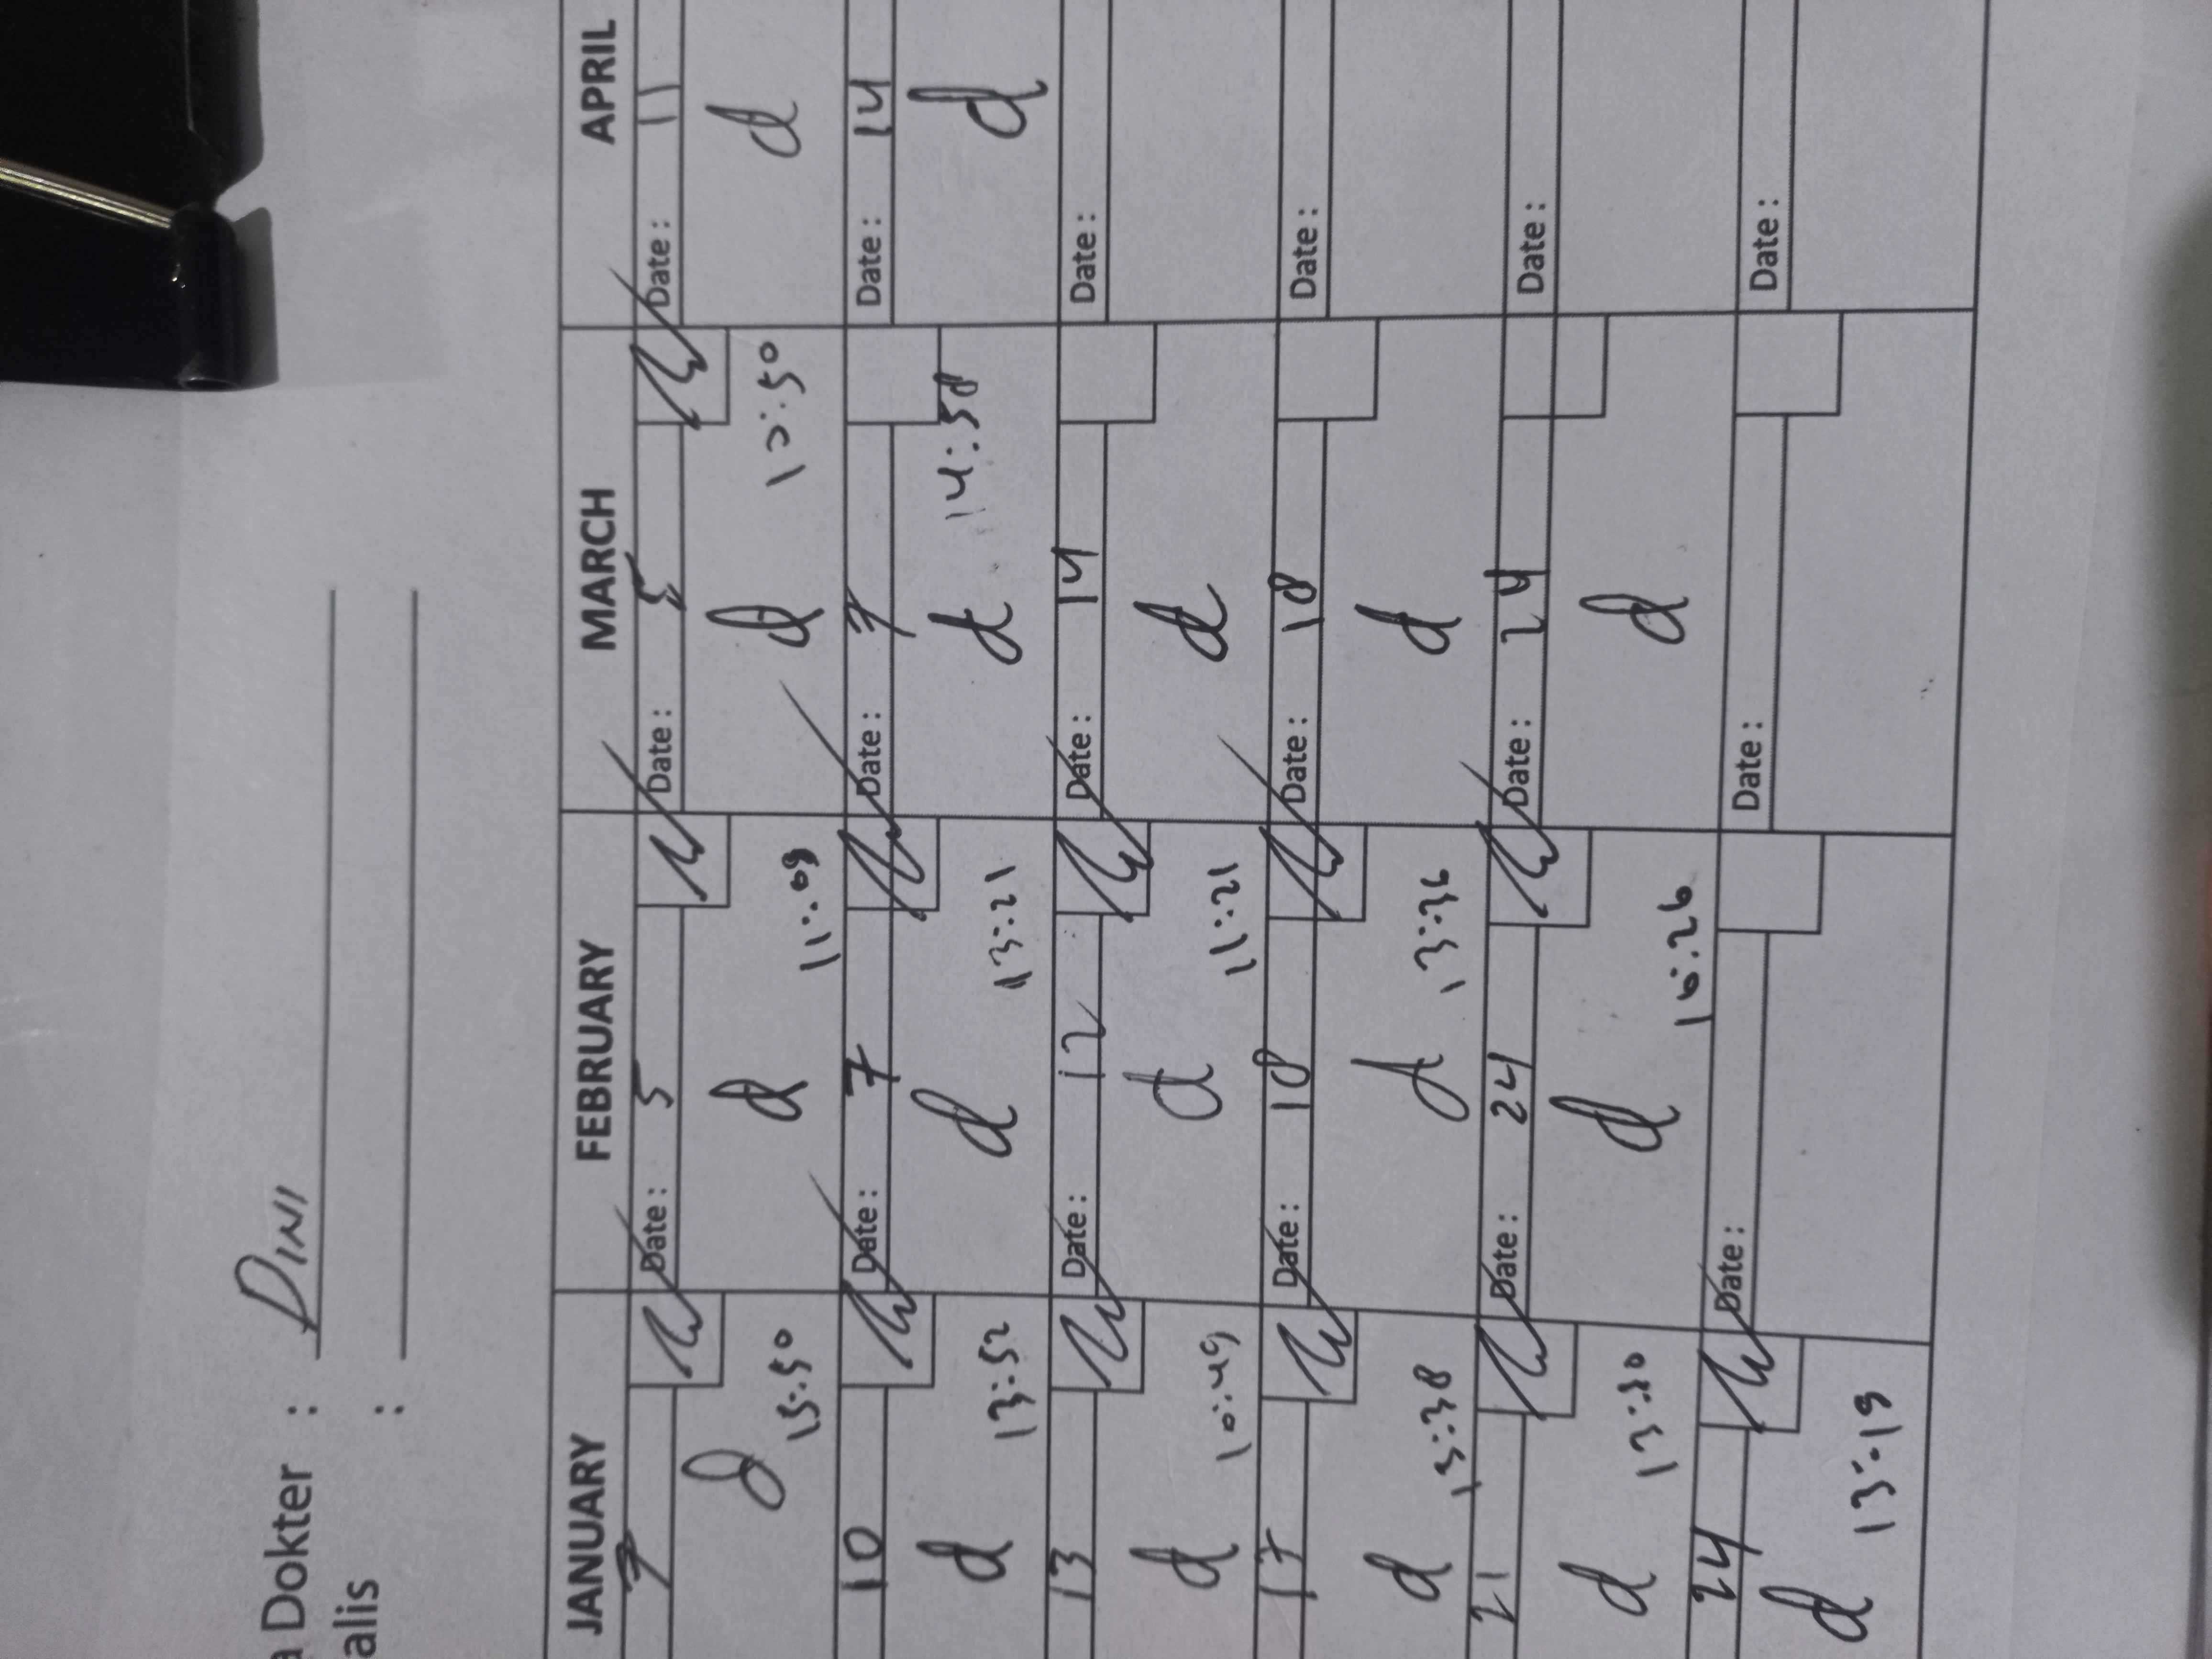 a Dokter : DINI
alis :
JANUARY FEBRUARY MARCH APRIL
7 Date: 5 Date: 5 Date: 11
d 15:50 d 11:09 d 12:50 d
10 Date: 7 Date: 7 Date: 14
d 13:52 d 13:21 d 14:58 d
13 Date: 12 Date: 14 Date:
d 10:49 d 11:21 d
17 Date: 18 Date: 18 Date:
d 13:38 d 13:36 d
21 Date: 24 Date: 24 Date:
d d 10:26 d
24 Date: Date: Date:
d 13:19